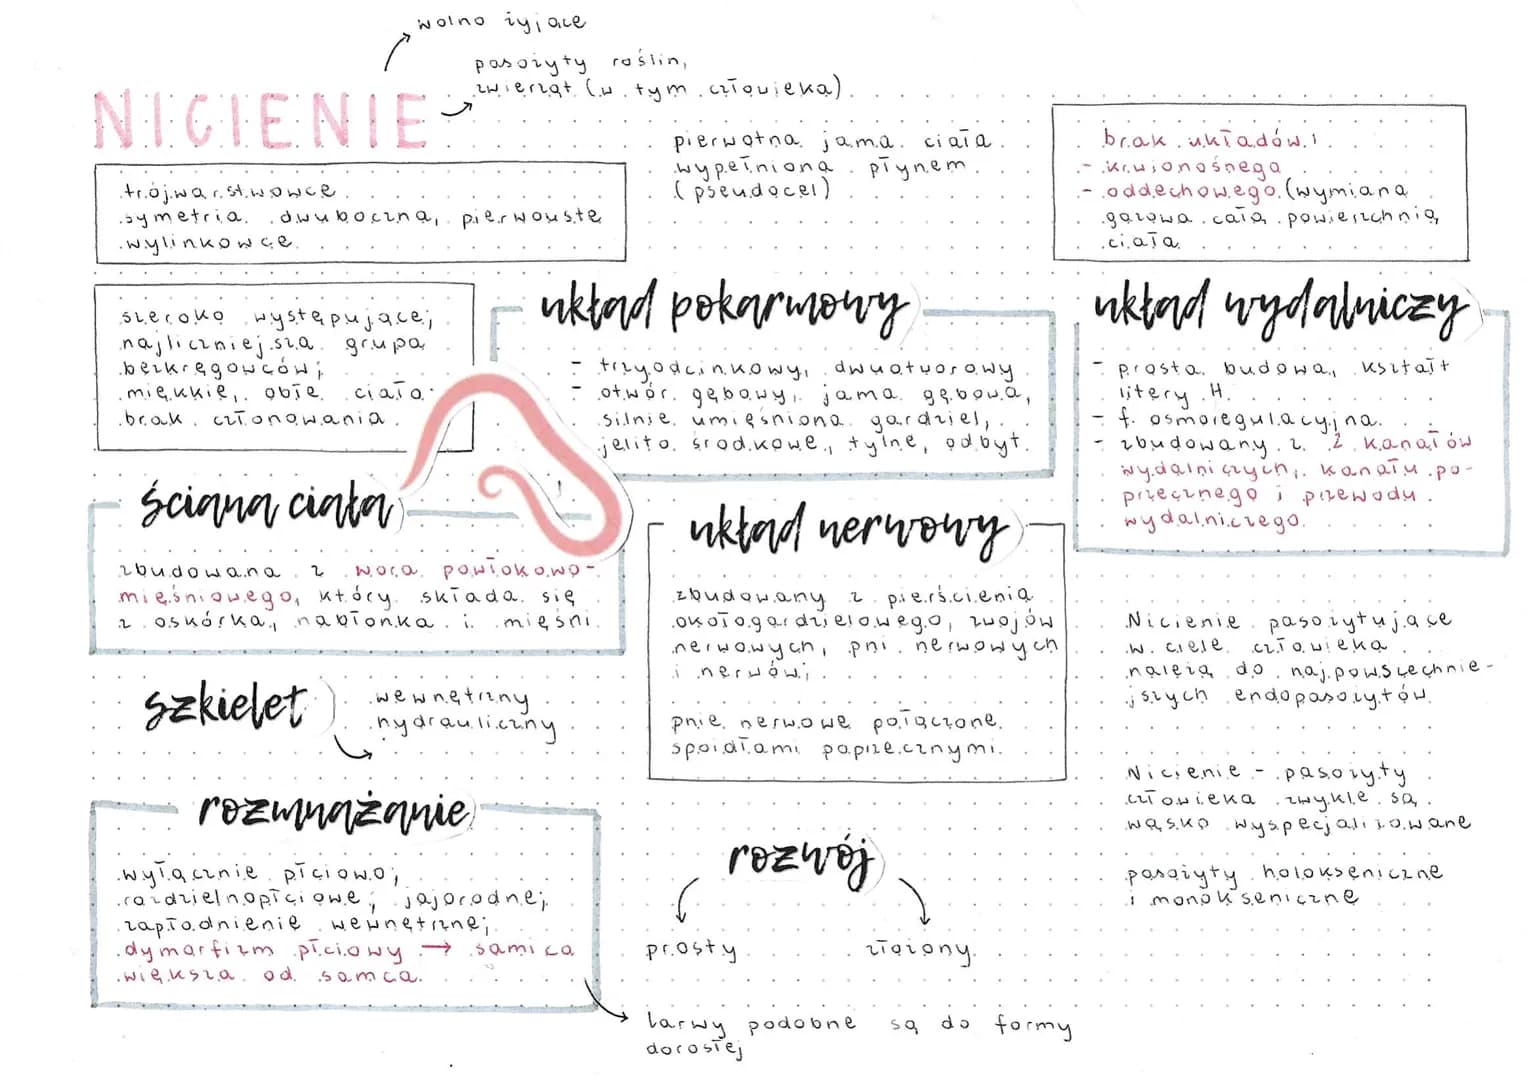 wolno żyjące
pasożyty roślin,
zwierząt (w tym człowieka)
NICIENIE
trójwarstwowce
symetria dwuboczna, pierwouste
wylinkowce
pierwotna jama ciała
wypełniona płynem
(pseudocel)
brak układów:
- krwionośnego
- oddechowego (wymiana
gazowa całą powierzchnią
ciała
szeroko występujące;
najliczniejsza grupa
bezkręgowców;
miękkie, obłe ciało;
brak członowania
układ pokarmowy
- trzyodcinkowy, dwuotworowy
- otwór gębowy, jama gębowa,
silnie umięśniona gardziel,
jelito środkowe, tylne, odbyt
układ wydalniczy
- prosta budowa, kształt
litery H
- f. osmoregulacyjna
- zbudowany z 2 kanałów
wydalniczych, kanału po-
przecznego i przewodu
wydalniczego
ściana ciała
zbudowana z wora powłokowo-
mięśniowego, który składa się
z oskórka, nabłonka i mięśni
układ nerwowy
zbudowany z pierścienia
okołogardzielowego, zwojów
nerwowych, pni nerwowych
i nerwów;
pnie nerwowe połączone
spoidłami poprzecznymi.
szkielet
wewnętrzny
hydrauliczny
Nicienie pasożytujące
w ciele człowieka
należą do najpowszechnie-
jszych endopasożytów
Nicienie - pasożyty
człowieka zwykle są
wąsko wyspecjalizowane
pasożyty holokseniczne
i monokseniczne
rozmnażanie
wyłącznie płciowo;
rozdzielnopłciowe; jajorodne;
zapłodnienie wewnętrzne;
dymorfizm płciowy → samica
większa od samca.
rozwój
prosty
złożony
larwy podobne są do formy
dorosłej